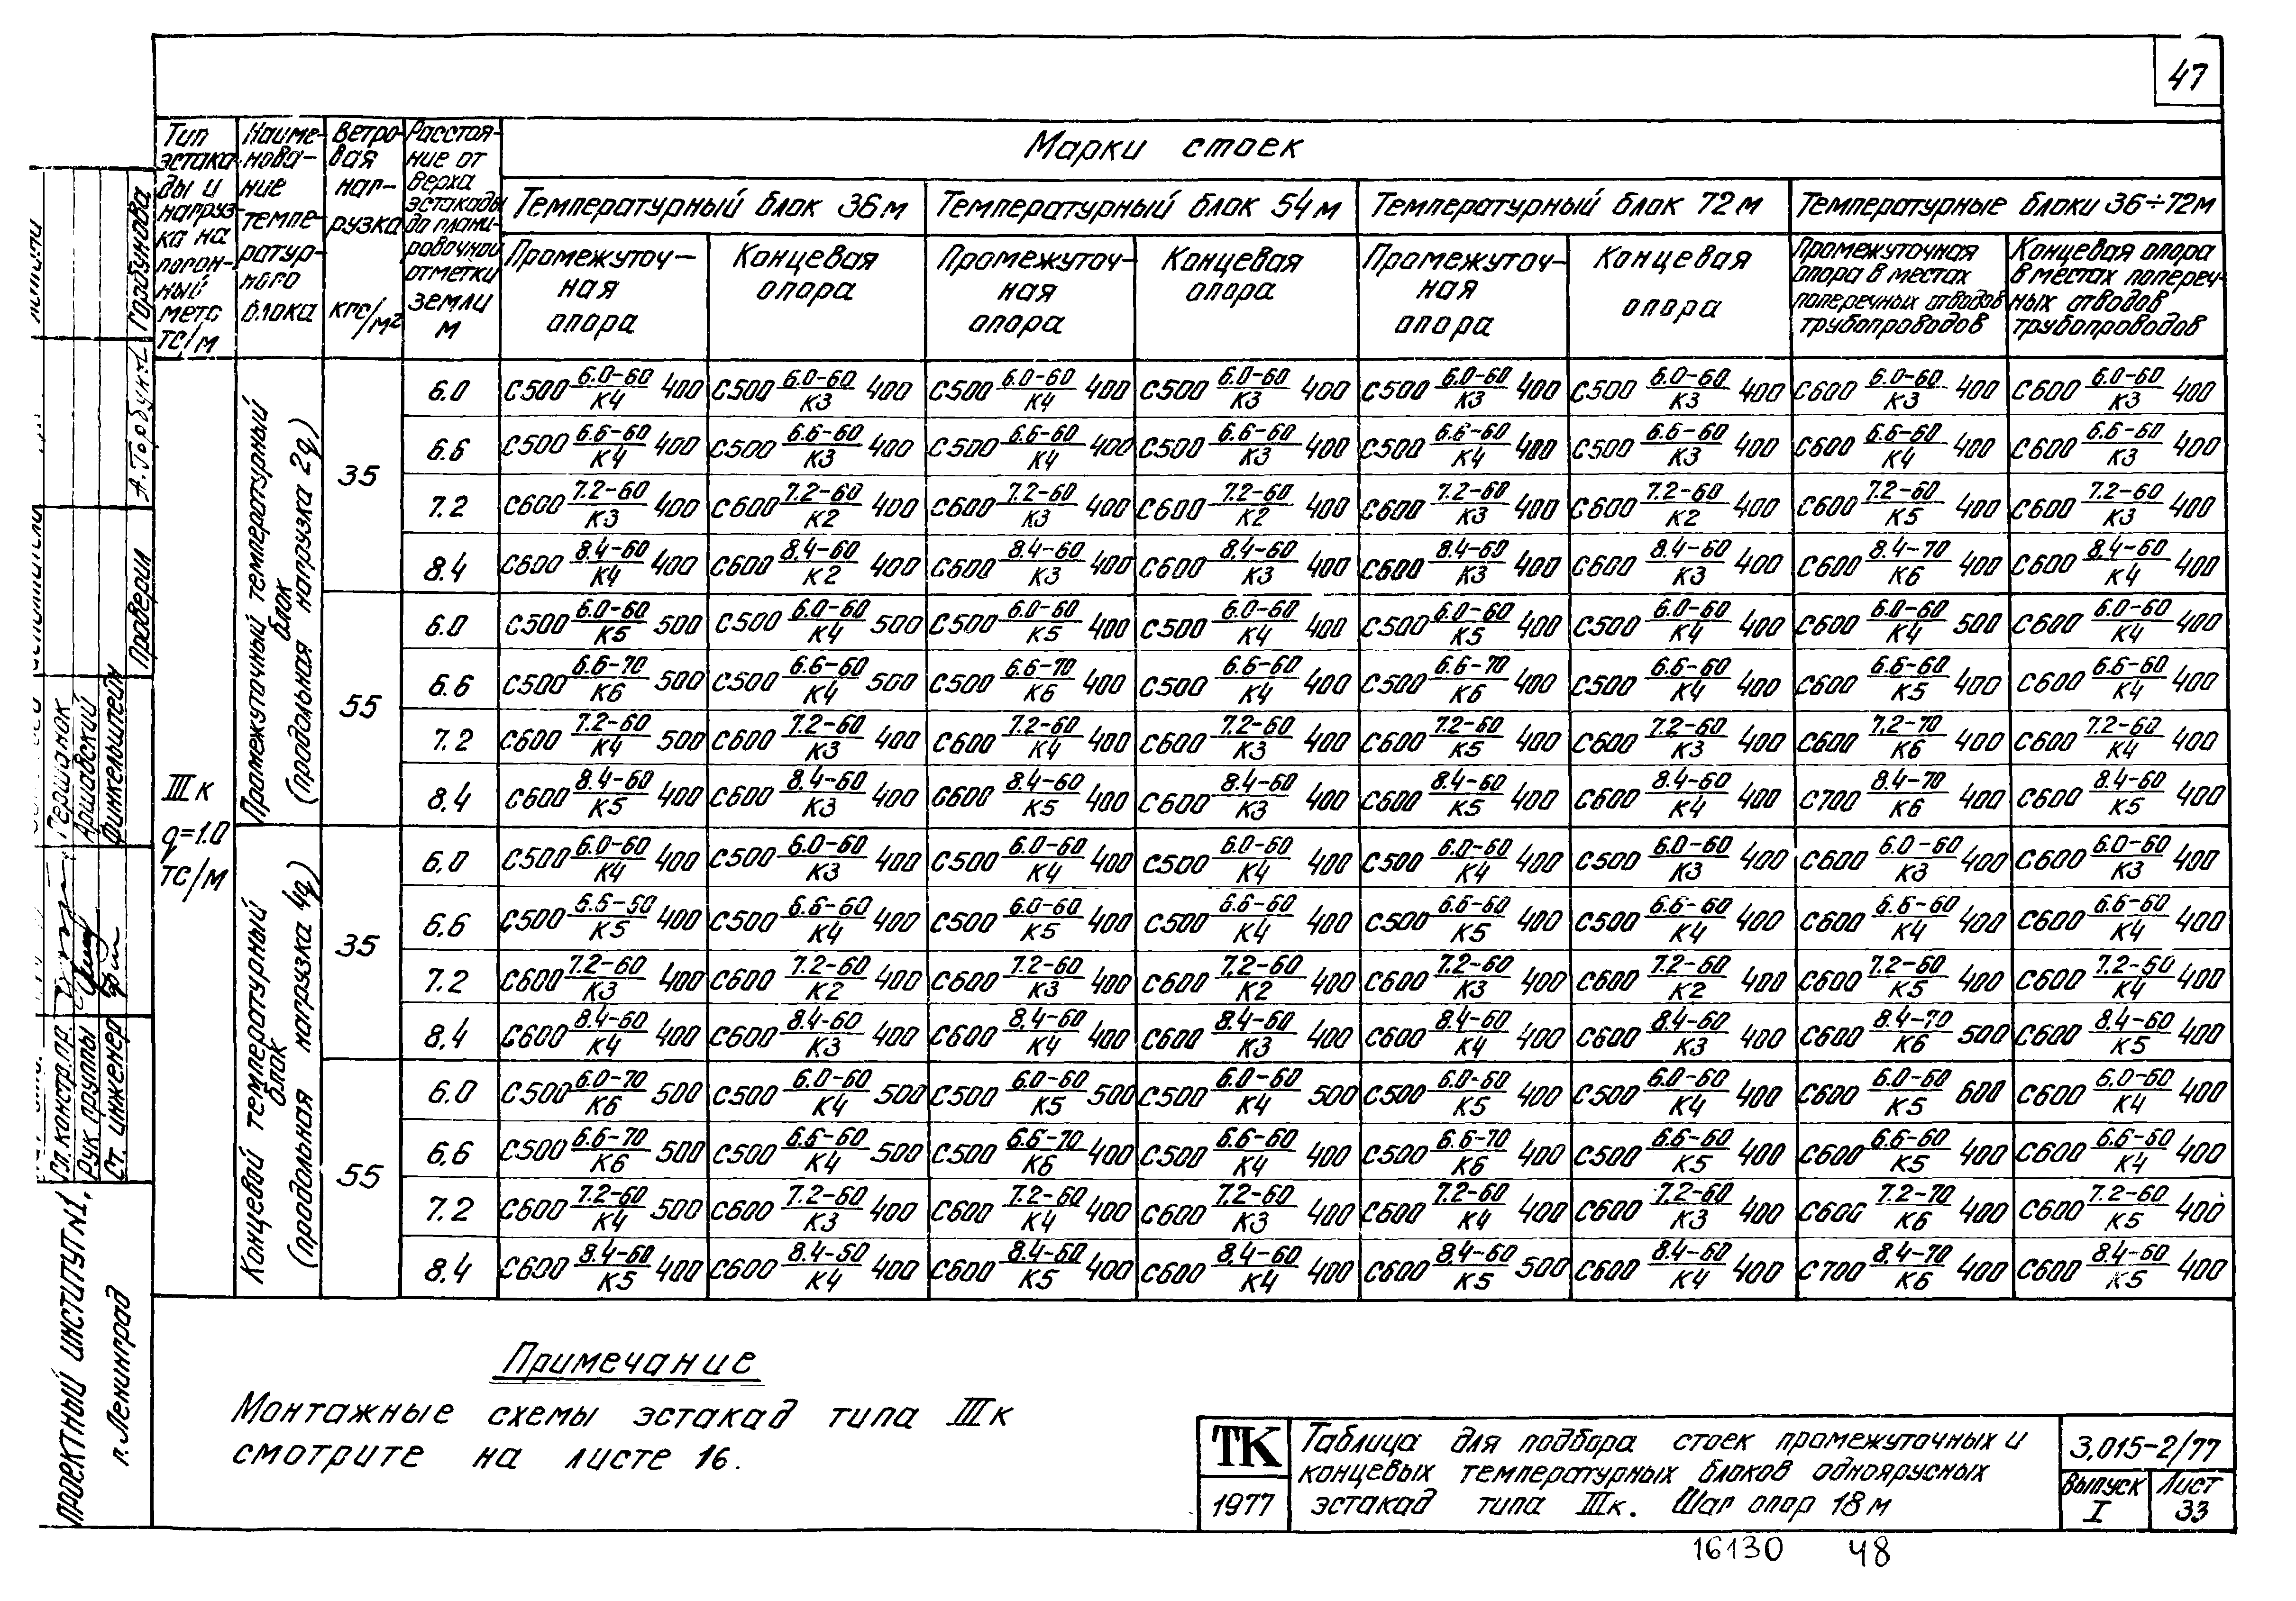 47
Тип эстакады и нагрузка на погонный метр тс/м
Наименование температурного блока
Ветровая нагрузка кгс/м²
Расстояние от верха эстакады до планировочной отметки земли м
Марки стоек
Температурный блок 36м
Температурный блок 54м
Температурный блок 72м
Температурные блоки 36÷72м
Промежуточная опора
Концевая опора
Промежуточная опора
Концевая опора
Промежуточная опора
Концевая опора
Промежуточная опора в местах поперечных отводов трубопроводов
Концевая опора в местах поперечных отводов трубопроводов
IIIк
q=1.0
тс/м
Промежуточный температурный блок
(продольная нагрузка 2q)
35
6.0 С500 6.0-60/К4 400 С500 6.0-60/К3 400 С500 6.0-60/К4 400 С500 6.0-60/К3 400 С500 6.0-60/К3 400 С500 6.0-60/К3 400 С600 6.0-60/К3 400 С600 6.0-60/К3 400
6.6 С500 6.6-60/К4 400 С500 6.6-60/К3 400 С500 6.6-60/К4 400 С500 6.6-60/К3 400 С500 6.6-60/К4 400 С500 6.6-60/К3 400 С600 6.6-60/К4 400 С600 6.6-60/К3 400
7.2 С600 7.2-60/К3 400 С600 7.2-60/К2 400 С600 7.2-60/К3 400 С600 7.2-60/К2 400 С600 7.2-60/К3 400 С600 7.2-60/К2 400 С600 7.2-60/К5 400 С600 7.2-60/К3 400
8.4 С600 8.4-60/К4 400 С600 8.4-60/К2 400 С600 8.4-60/К3 400 С600 8.4-60/К3 400 С600 8.4-60/К3 400 С600 8.4-60/К3 400 С600 8.4-70/К6 400 С600 8.4-60/К4 400
55
6.0 С500 6.0-60/К5 500 С500 6.0-60/К4 500 С500 6.0-60/К5 400 С500 6.0-60/К4 400 С500 6.0-60/К5 400 С500 6.0-60/К4 400 С600 6.0-60/К4 500 С600 6.0-60/К4 400
6.6 С500 6.6-70/К6 500 С500 6.6-60/К4 500 С500 6.6-70/К6 400 С500 6.6-60/К4 400 С500 6.6-70/К6 400 С500 6.6-60/К4 400 С600 6.6-60/К5 400 С600 6.6-60/К4 400
7.2 С600 7.2-60/К4 500 С600 7.2-60/К3 400 С600 7.2-60/К4 400 С600 7.2-60/К3 400 С600 7.2-60/К5 400 С600 7.2-60/К3 400 С600 7.2-70/К6 400 С600 7.2-60/К4 400
8.4 С600 8.4-60/К5 400 С600 8.4-60/К3 400 С600 8.4-60/К5 400 С600 8.4-60/К3 400 С600 8.4-60/К5 400 С600 8.4-60/К4 400 С700 8.4-70/К6 400 С600 8.4-60/К5 400
Концевой температурный блок
(продольная нагрузка 4q)
35
6.0 С500 6.0-60/К4 400 С500 6.0-60/К3 400 С500 6.0-60/К4 400 С500 6.0-60/К4 400 С500 6.0-60/К4 400 С500 6.0-60/К3 400 С600 6.0-60/К3 400 С600 6.0-60/К3 400
6.6 С500 6.6-60/К5 400 С500 6.6-60/К4 400 С500 6.0-60/К5 400 С500 6.6-60/К4 400 С500 6.6-60/К5 400 С500 6.6-60/К4 400 С600 6.6-60/К4 400 С600 6.6-60/К4 400
7.2 С600 7.2-60/К3 400 С600 7.2-60/К2 400 С600 7.2-60/К3 400 С600 7.2-60/К2 400 С600 7.2-60/К3 400 С600 7.2-60/К2 400 С600 7.2-60/К5 400 С600 7.2-60/К4 400
8.4 С600 8.4-60/К4 400 С600 8.4-60/К3 400 С600 8.4-60/К4 400 С600 8.4-60/К3 400 С600 8.4-60/К4 400 С600 8.4-60/К3 400 С600 8.4-70/К6 500 С600 8.4-60/К5 400
55
6.0 С500 6.0-70/К6 500 С500 6.0-60/К4 500 С500 6.0-60/К5 500 С500 6.0-60/К4 500 С500 6.0-60/К5 400 С500 6.0-60/К4 400 С600 6.0-60/К5 600 С600 6.0-60/К4 400
6.6 С500 6.6-70/К6 500 С500 6.6-60/К4 500 С500 6.6-70/К6 400 С500 6.6-60/К4 400 С500 6.6-70/К6 400 С500 6.6-60/К5 400 С600 6.6-60/К5 400 С600 6.6-60/К4 400
7.2 С600 7.2-60/К4 500 С600 7.2-60/К3 400 С600 7.2-60/К4 400 С600 7.2-60/К3 400 С600 7.2-60/К4 400 С600 7.2-60/К3 400 С600 7.2-70/К6 400 С600 7.2-60/К5 400
8.4 С600 8.4-60/К5 400 С600 8.4-60/К4 400 С600 8.4-60/К5 400 С600 8.4-60/К4 400 С600 8.4-60/К5 500 С600 8.4-60/К4 400 С700 8.4-70/К6 400 С600 8.4-60/К5 400
Примечание
Монтажные схемы эстакад типа IIIк
смотрите на листе 16.
ТК
1977
Таблица для подбора стоек промежуточных и
концевых температурных блоков одноярусных
эстакад типа IIIк. Шаг опор 18м
3.015-2/77
Выпуск
I
Лист
33
16130 48
Проектный институт №1,
г. Ленинград
Гл. констр. пр.
Рук. группы
Ст. инженер
Гершанок
Аршавский
Финкельштейн
Проверил
Горбунова